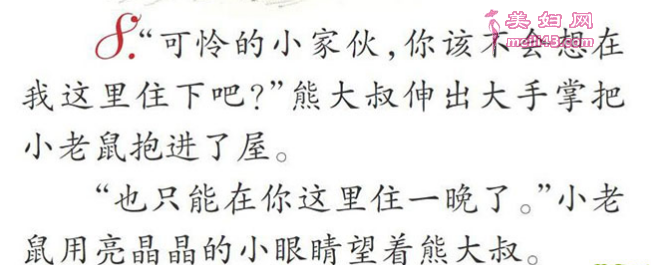 美妇网
meifu43.com
8.“可怜的小家伙,你该不会想在
我这里住下吧?”熊大叔伸出大手掌把
小老鼠抱进了屋。
“也只能在你这里住一晚了。”小老
鼠用亮晶晶的小眼睛望着熊大叔。